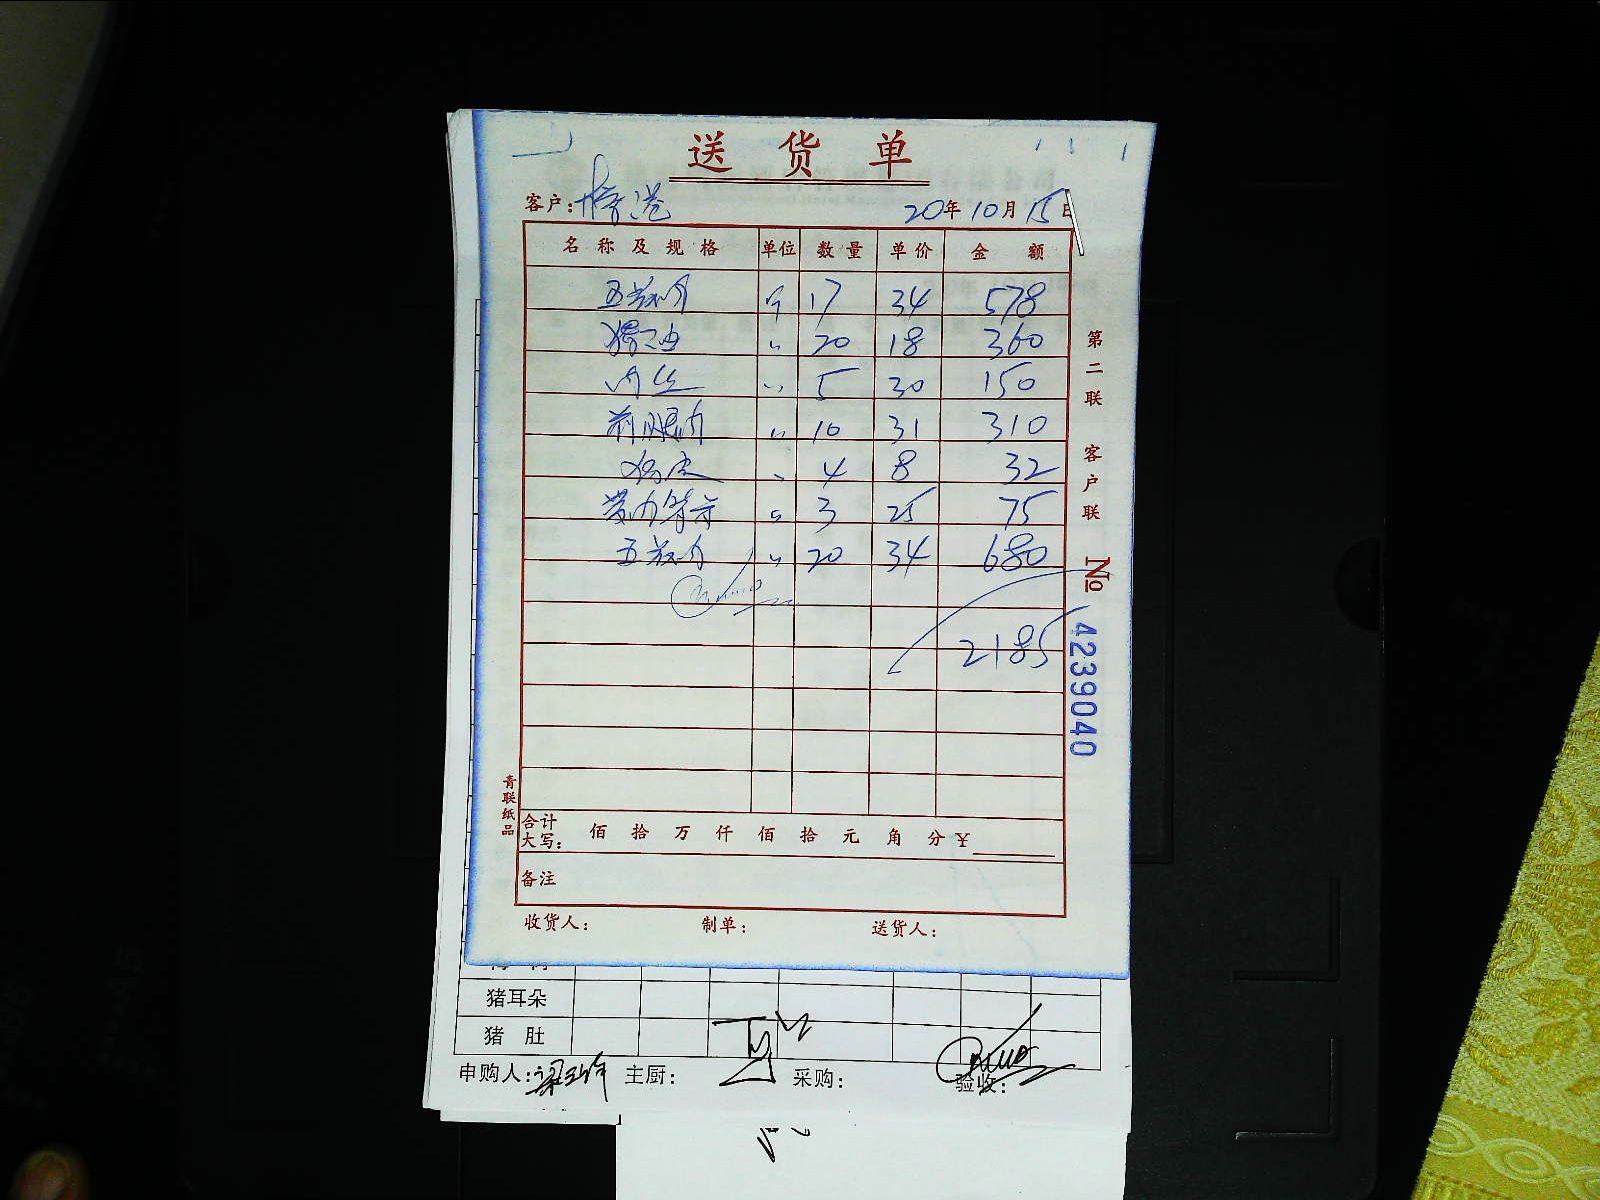 送货单
客户: 20年10月15日
名称及规格 单位 数量 单价 金额
五花肉 斤 17 34 578
猪油 〃 20 18 360
肉丝 〃 5 30 150
前腿肉 〃 10 31 310
猪皮 〃 4 8 32
3 25 75
五花肉 〃 20 34 680
2185
合计大写: 佰 拾 万 仟 佰 拾 元 角 分 ¥
备注
收货人: 制单: 送货人:
第二联 客户联 № 4239040
青联纸品
猪耳朵
猪 肚
申购人: 主厨: 采购: 验收: